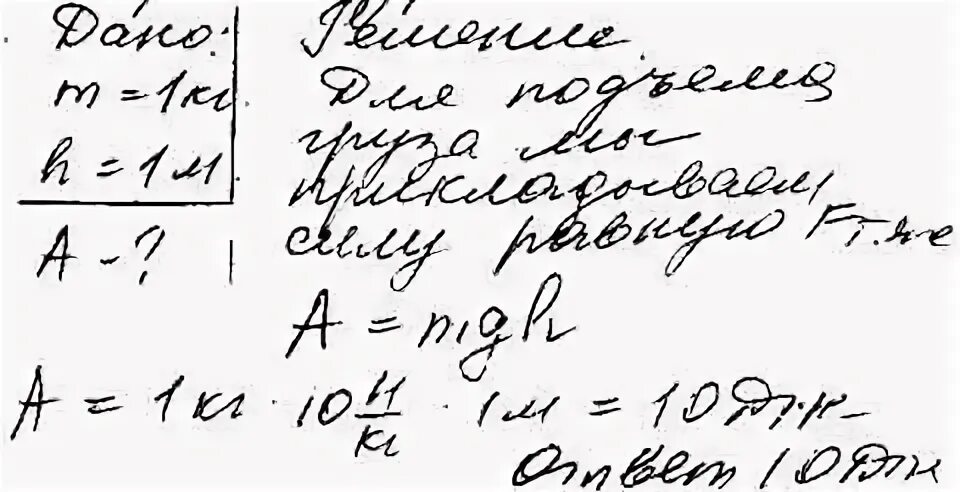 Дано:
m = 1кг.
h = 1м.
A - ?
Решение
Для подъема
груза мы
прикладываем
силу равную Fт.яже
A = mgh
A = 1кг · 10 Н/кг · 1м = 10Дж
Ответ 10Дж